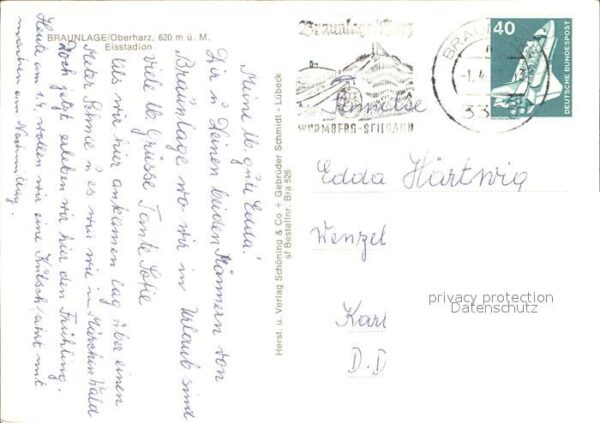 BRAUNLAGE/Oberharz, 620 m ü. M.
Eisstadion
Meine lb. gute Edda!
Dir u. Deinen beiden Männern von
Braunlage wo wir in Urlaub sind
viele lb. Grüsse Tante Sofie
Als wir hier ankamen lag über einen
Meter Schnee u. es war wie in Märchen Wald
Doch jetzt erleben wir hier den Frühling.
Heute am 1.4. wollen wir eine Kutschfahrt mit
machen am Nachmittag.
Herst. u. Verlag Schöning & Co + Gebrüder Schmidt - Lübeck
sf Bestellnr. Bra 526
Braunlage/Harz
WURMBERG-SEILBAHN
BRAUN
-1.4
33
40
DEUTSCHE BUNDESPOST
Familie
Edda Härtwig
Wenzel
Karl
D.D
privacy protection
Datenschutz